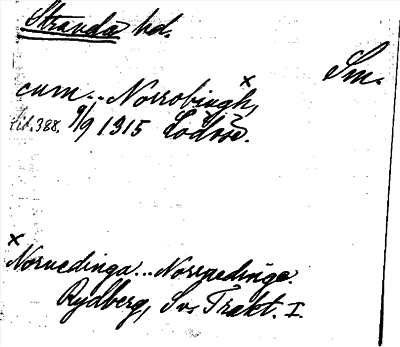 Stranda hd.
Sm.
cum... Norrobingh,ˣ
lib. 388. 9/9 1315 Lödöse.
x Norruedinga... Norruedinge.
Rydberg, Sv. Trakt. I.